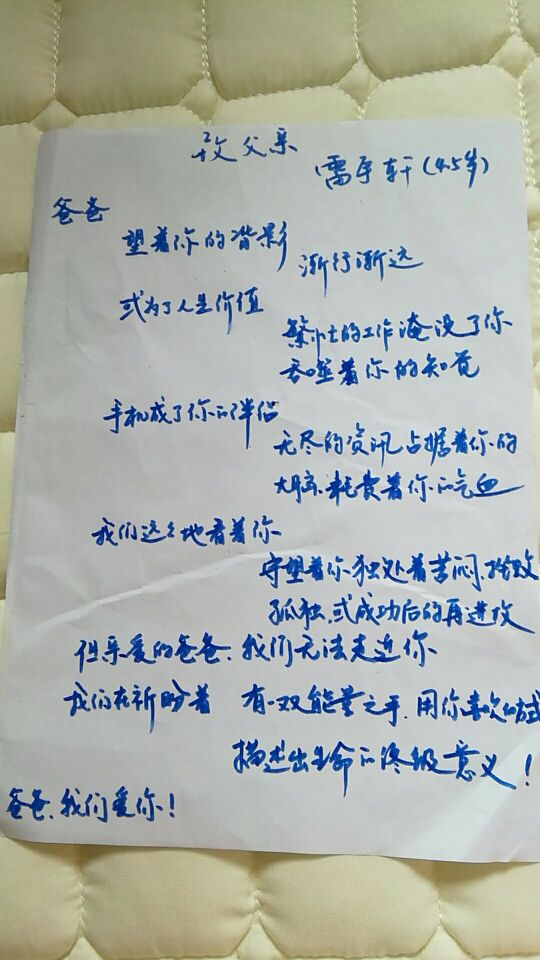 致父亲
雷宇轩(4.5岁)
爸爸
望着你的背影
渐行渐远
或为了人生价值
繁忙的工作淹没了你
吞噬着你的知觉
手机成了你的伴侣
无尽的资讯占据着你的
大脑.耗费着你的气血
我们远远地看着你
守望着你独处着苦闷.挫败
孤独.或成功后的再进攻
但亲爱的爸爸.我们无法走近你
我们在祈盼着 有一双能量之手.用你喜欢的方式
描述出生命的终级意义!
爸爸.我们爱你!